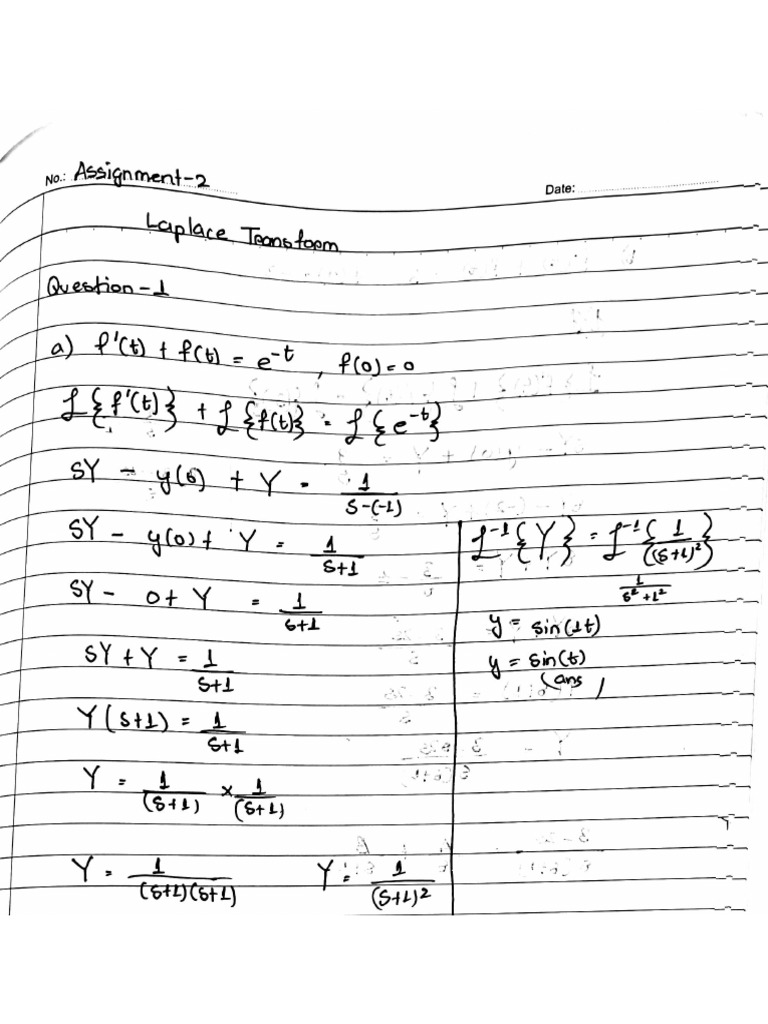 No.: Assignment-2
Date:
Laplace Transform
Question-1
a) f'(t) + f(t) = e^-t , f(0)=0
L{f'(t)} + L{f(t)} = L{e^-t}
SY - y(0) + Y = 1/(S-(-1))
SY - y(0) + Y = 1/(S+1)
SY - 0 + Y = 1/(S+1)
SY + Y = 1/(S+1)
Y(S+1) = 1/(S+1)
Y = 1/(S+1) × 1/(S+1)
Y = 1/((S+1)(S+1)) Y = 1/(S+1)^2
L^-1{Y} = L^-1{1/((S+1)^2)}
1/(S^2+1^2)
y = sin(1t)
y = sin(t)
(ans)